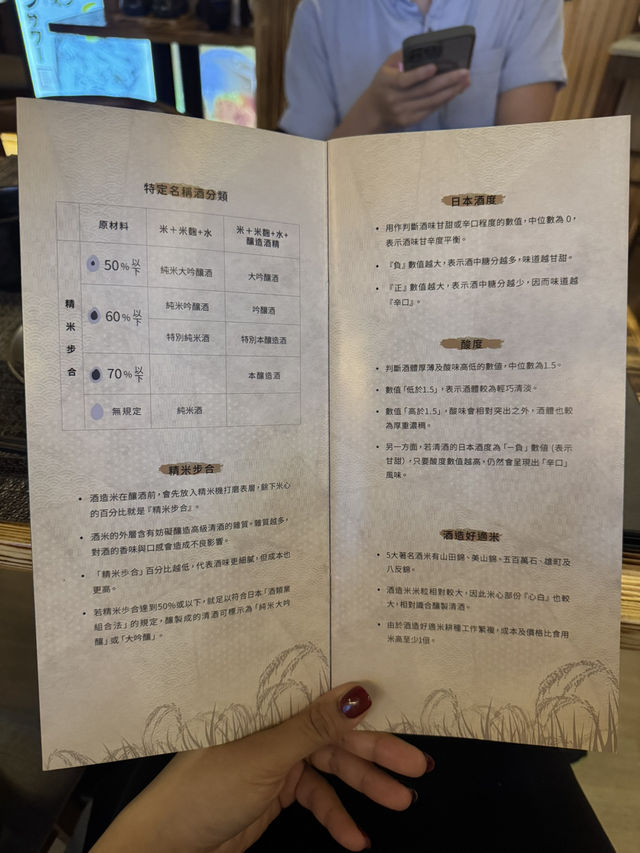 特定名稱酒分類
原材料 米＋米麴+水 米＋米麴+水+
釀造酒精
精米步合
50%以下 純米大吟釀酒 大吟釀酒
60%以下 純米吟釀酒 吟釀酒
特別純米酒 特別本釀造酒
70%以下 本釀造酒
無規定 純米酒
精米步合
• 酒造米在釀酒前，會先放入精米機打磨表層，餘下米心
的百分比就是『精米步合』。
• 酒米的外層含有妨礙釀造高級清酒的雜質。雜質越多，
對酒的香味與口感會造成不良影響。
• 「精米步合」百分比越低，代表酒味更細膩，但成本也
更高。
• 若精米步合達到50%或以下，就足以符合日本「酒類業
組合法」的規定，釀製成的清酒可標示為「純米大吟
釀」或「大吟釀」。
日本酒度
• 用作判斷酒味甘甜或辛口程度的數值，中位數為 0，
表示酒味甘辛度平衡。
• 『負』數值越大，表示酒中糖分越多，味道越甘甜。
• 『正』數值越大，表示酒中糖分越少，因而味道越
『辛口』。
酸度
• 判斷酒體厚薄及酸味高低的數值，中位數為1.5。
• 數值「低於1.5」，表示酒體較為輕巧清淡。
• 數值「高於1.5」，酸味會相對突出之外，酒體也較
為厚重濃稠。
• 另一方面，若清酒的日本酒度為「一負」數值 (表示
甘甜)，只要酸度數值越高，仍然會呈現出「辛口」
風味。
酒造好適米
• 5大著名酒米有山田錦、美山錦、五百萬石、雄町及
八反錦。
• 酒造米米粒相對較大，因此米心部份『心白』也較
大，相對適合釀製清酒。
• 由於酒造好適米耕種工作繁複，成本及價格比食用
米高至少1倍。